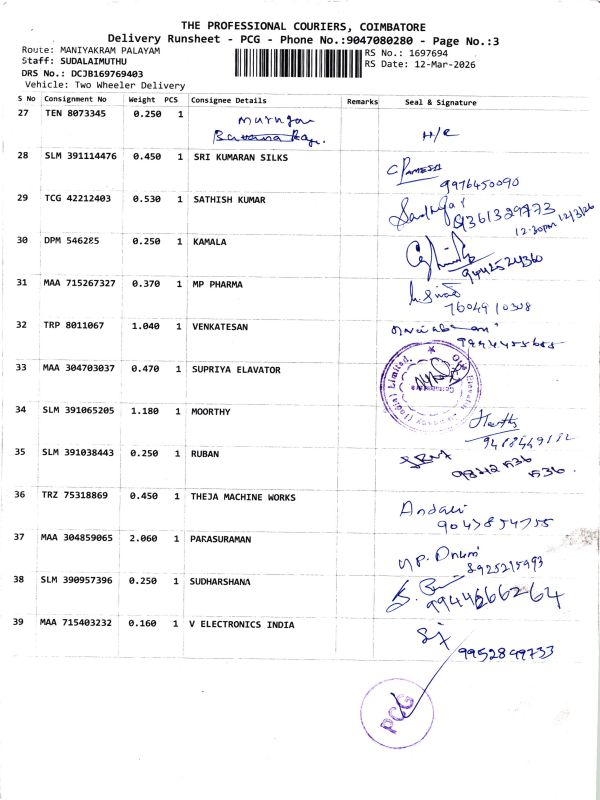 THE PROFESSIONAL COURIERS, COIMBATORE
Delivery Runsheet - PCG - Phone No.:9047080280 - Page No.:3
Route: MANIYAKRAM PALAYAM
RS No.: 1697694
Staff: SUDALAIMUTHU
RS Date: 12-Mar-2026
DRS No.: DCJB169769403
Vehicle: Two Wheeler Delivery
S No Consignment No Weight PCS Consignee Details Remarks Seal & Signature
27 TEN 8073345 0.250 1 Murugan
28 SLM 391114476 0.450 1 SRI KUMARAN SILKS
9976450090
29 TCG 42212403 0.530 1 SATHISH KUMAR
9361329773
12.30pm 12/3/26
30 DPM 546285 0.250 1 KAMALA
9442524360
31 MAA 715267327 0.370 1 MP PHARMA
7604910308
32 TRP 8011067 1.040 1 VENKATESAN
33 MAA 304703037 0.470 1 SUPRIYA ELAVATOR
34 SLM 391065205 1.180 1 MOORTHY
35 SLM 391038443 0.250 1 RUBAN
36 TRZ 75318869 0.450 1 THEJA MACHINE WORKS
Andavi
9043854755
37 MAA 304859065 2.060 1 PARASURAMAN
8925215993
38 SLM 390957396 0.250 1 SUDHARSHANA
9944666264
39 MAA 715403232 0.160 1 V ELECTRONICS INDIA
9952899733
PCG